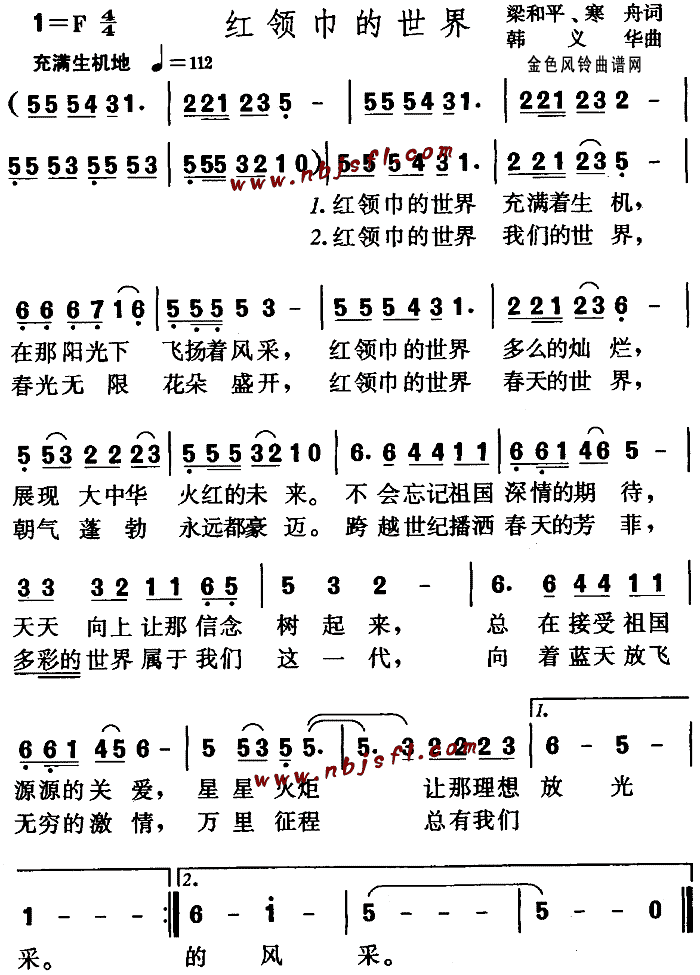 1=F 4/4 红领巾的世界 梁和平、寒 舟词
韩 义 华曲
充满生机地 ♩=112 金色风铃曲谱网
(555431. | 221235 - | 555431. | 221232 - |
55535553 | 5553210) | 555431. | 221235 - |
www.nbjsfl.com
1.红领巾的世界 充满着生 机,
2.红领巾的世界 我们的世 界,
666716 | 555553 - | 555431. | 221236 - |
在那阳光下 飞扬着风采, 红领巾的世界 多么的灿 烂,
春光无 限 花朵 盛开, 红领巾的世界 春天的世 界,
5532223 | 5553210 | 6.64411 | 661465 - |
展现 大中华 火红的未 来。 不 会忘记祖国 深情的期 待,
朝气 蓬 勃 永远都豪 迈。 跨 越世纪播洒 春天的芳 菲,
33 32 11 65 | 5 3 2 - | 6. 6 44 11 |
天天 向上 让那 信念 树 起 来, 总 在接受 祖国
多彩的 世界 属于 我们 这 一 代, 向 着蓝天 放飞
661456 - | 55355. | 5. 322223 | 1. 6 - 5 - |
www.nbjsfl.com
源源的关 爱, 星 星 火炬 让那理想 放 光
无穷的激 情, 万 里 征程 总有我们
1 - - - :| 2. 6 - 1 - | 5 - - - | 5 - - 0 ‖
采。 的 风 采。